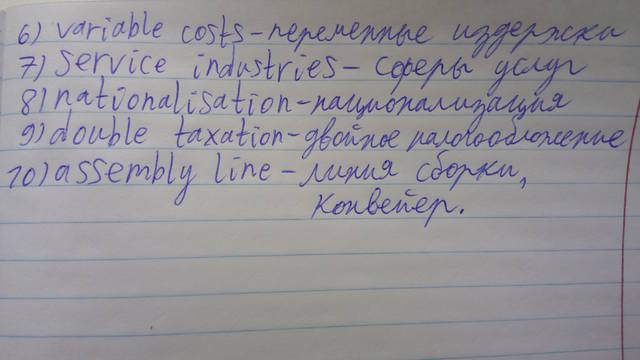 6) variable costs - переменные издержки
7) service industries - сферы услуг
8) nationalisation - национализация
9) double taxation - двойное налогообложение
10) assembly line - линия сборки,
конвейер.